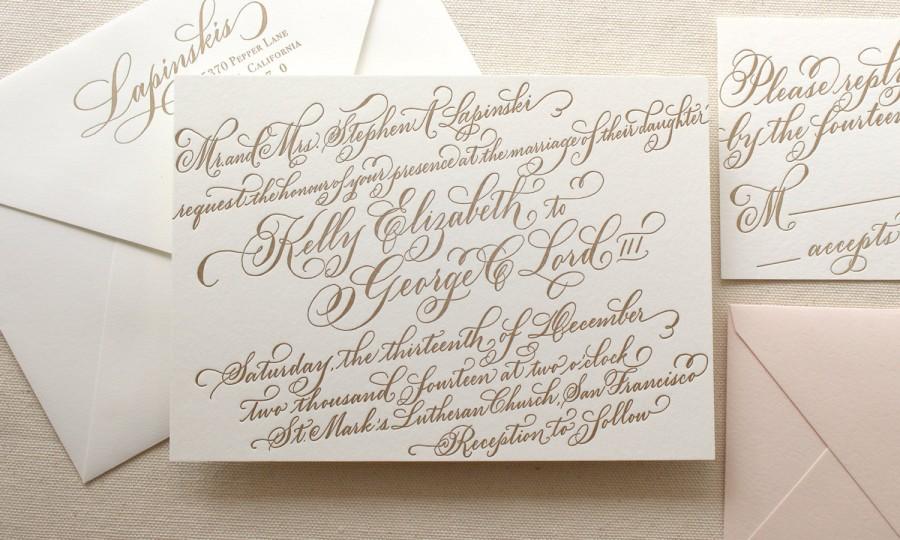 Lapinskis
5370 Pepper Lane
California
7 0
Mr. and Mrs. Stephen A Lapinski
request the honour of your presence at the marriage of their daughter
Kelly Elizabeth to
George C Lord III
Saturday, the thirteenth of December
two thousand fourteen at two o'clock
St. Mark's Lutheran Church, San Francisco
Reception to follow
Please reply
by the fourteen
M
accepts